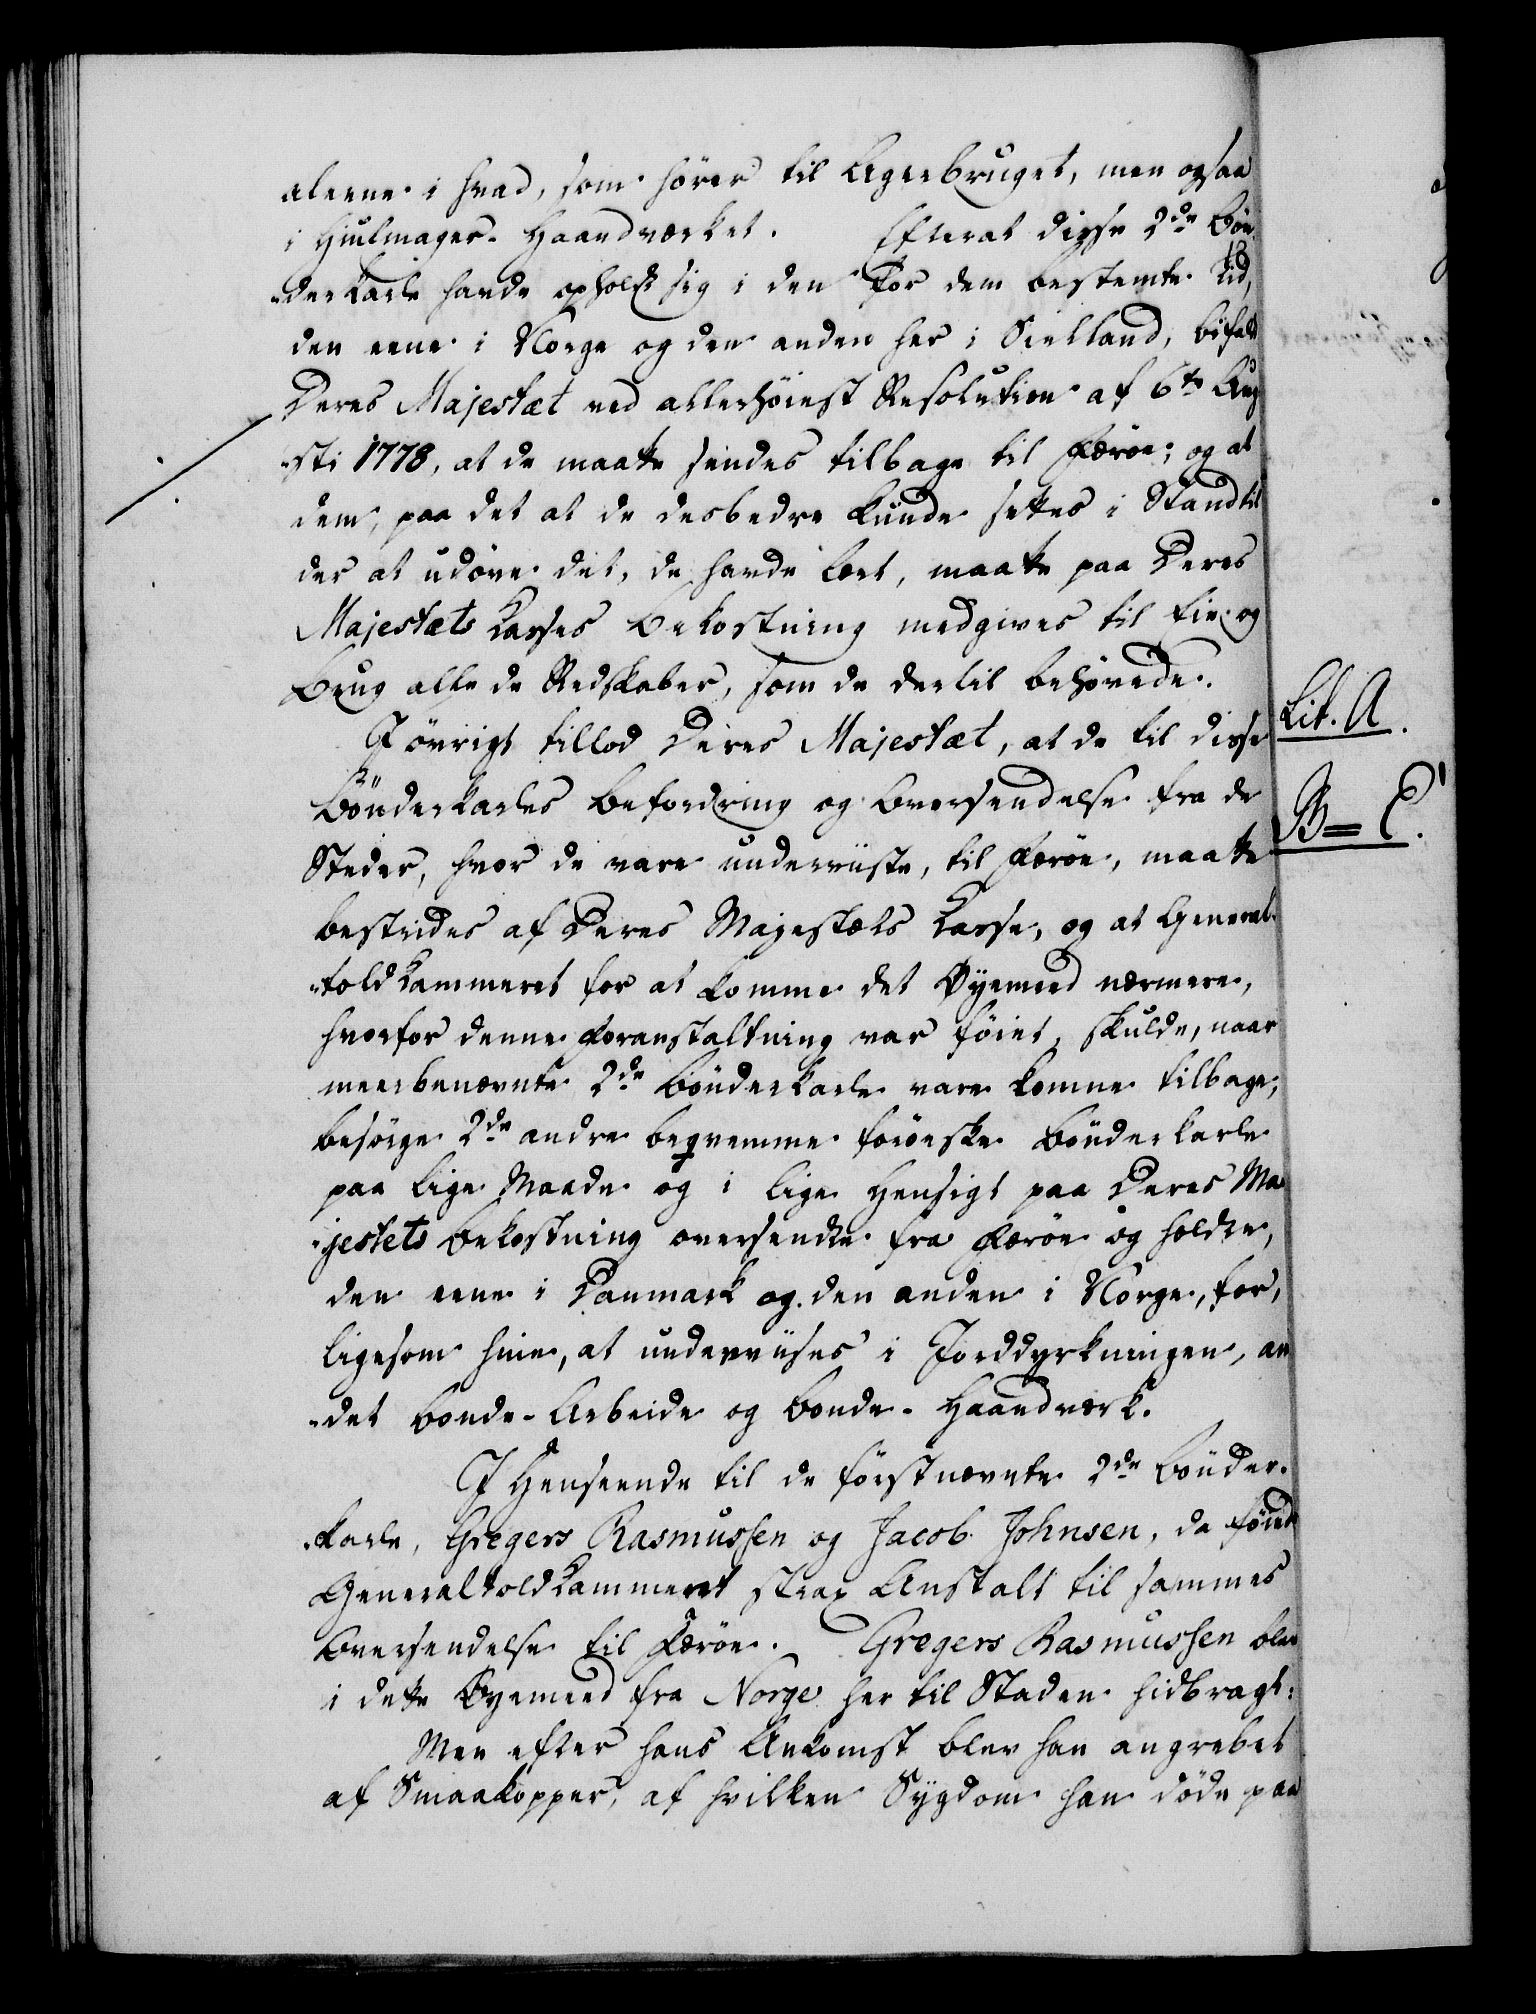 aleene i hvad, som hører til Agerbruget, men ogsaa
i Hiulmager-Haandværket. Efterat disse 2de Bøn-
-derkarle havde opholdt sig i den for dem bestemte Tid,
den eene i Norge og den anden her i Sielland, bifaldt
Deres Majestæt ved allerhøiest Resolution af 6te Aug
-sti 1778, at de maatte sendes tilbage til Færøe; og at
dem, paa det at de desbedre kunde settes i Stand til
der at udøve det, de havde lært, maatte paa Deres
Majestæts Casses Bekostning medgives til Eie og
Brug alle de Redskaber, som de dertil behøvede.
I øvrigt tillod Deres Majestæt, at de til disse
Bønderkarles Befordring og Oversendelse fra de
Steder, hvor de vare underviiste, til Færøe, maatte
bestrides af Deres Majestæts Casse, og at General-
-toldkammeret for at komme det Øyemeed nærmere,
hvorfor denne Foranstaltning var føiet, skulde, naar
meerbenævnte 2de Bønderkarle vare komne tilbage,
besørge 2de andre beqvemme færøeske Bønderkarle
paa lige Maade og i lige Hensigt paa Deres Ma
-jestets Bekostning oversendte fra Færøe og holdte,
den eene i Danmark og den anden i Norge, for,
ligesom hine, at underviises i Jorddyrkningen, an
-det Bonde-Arbeide og Bonde-Haandværk.
I Henseende til de førstnævnte 2de Bønder-
-karle, Gregers Rasmussen og Jacob Johnsen, da føiede
Generaltoldkammeret strax Anstalt til sammes
Oversendelse til Færøe. Gregers Rasmussen blev
i dette Øyemeed fra Norge her til Staden hidbragt:
Men efter hans Ankomst blev han angrebet
af Smaakopper, af hvilken Sygdom han døde paa
Lit. A.
B = C.